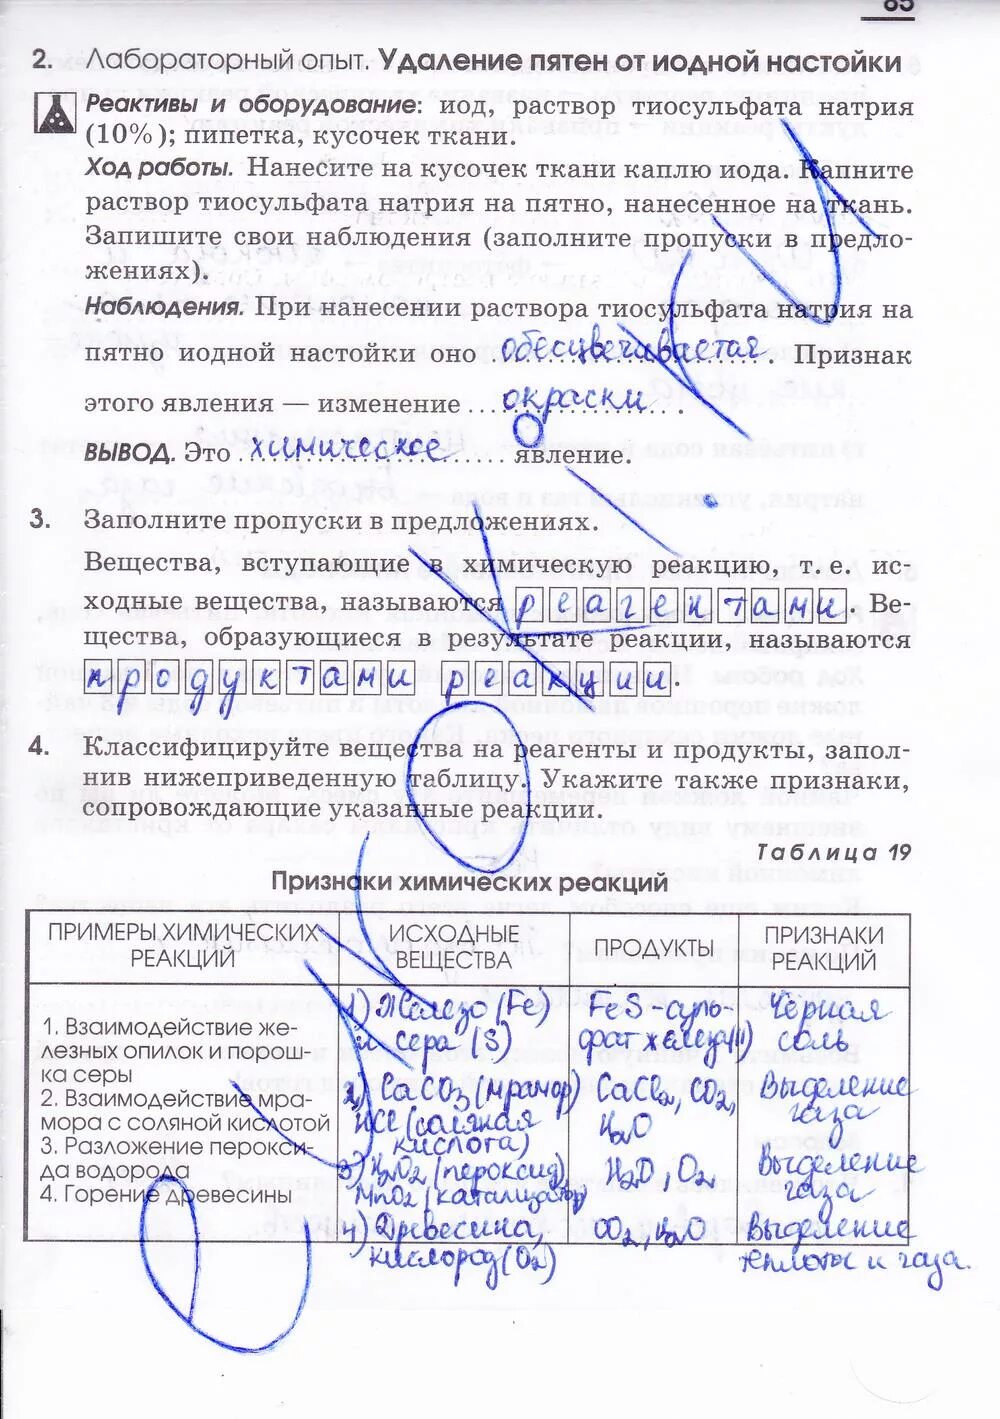 85
2. Лабораторный опыт. Удаление пятен от иодной настойки
Реактивы и оборудование: иод, раствор тиосульфата натрия
(10%); пипетка, кусочек ткани.
Ход работы. Нанесите на кусочек ткани каплю иода. Капните
раствор тиосульфата натрия на пятно, нанесенное на ткань.
Запишите свои наблюдения (заполните пропуски в предло-
жениях).
Наблюдения. При нанесении раствора тиосульфата натрия на
пятно иодной настойки оно обесцвечивается. Признак
этого явления — изменение окраски.
ВЫВОД. Это химическое явление.
3. Заполните пропуски в предложениях.
Вещества, вступающие в химическую реакцию, т. е. ис-
ходные вещества, называются реагентами. Ве-
щества, образующиеся в результате реакции, называются
продуктами реакции.
4. Классифицируйте вещества на реагенты и продукты, запол-
нив нижеприведенную таблицу. Укажите также признаки,
сопровождающие указанные реакции.
Таблица 19
Признаки химических реакций
ПРИМЕРЫ ХИМИЧЕСКИХ
РЕАКЦИЙ
ИСХОДНЫЕ
ВЕЩЕСТВА
ПРОДУКТЫ
ПРИЗНАКИ
РЕАКЦИЙ
1. Взаимодействие же-
лезных опилок и порош-
ка серы
2. Взаимодействие мра-
мора с соляной кислотой
3. Разложение перокси-
да водорода
4. Горение древесины
1) Железо (Fe)
и сера (S)
2) CaCO3 (мрамор)
HCl (соляная
кислота)
3) H2O2 (пероксид)
MnO2 (катализатор)
4) Древесина,
кислород (O2)
FeS - суль-
фат железа(II)
CaCl2, CO2,
H2O
H2O, O2
CO2, H2O
Чёрная
соль
Выделение
газа
Выделение
газа
Выделение
теплоты и газа.